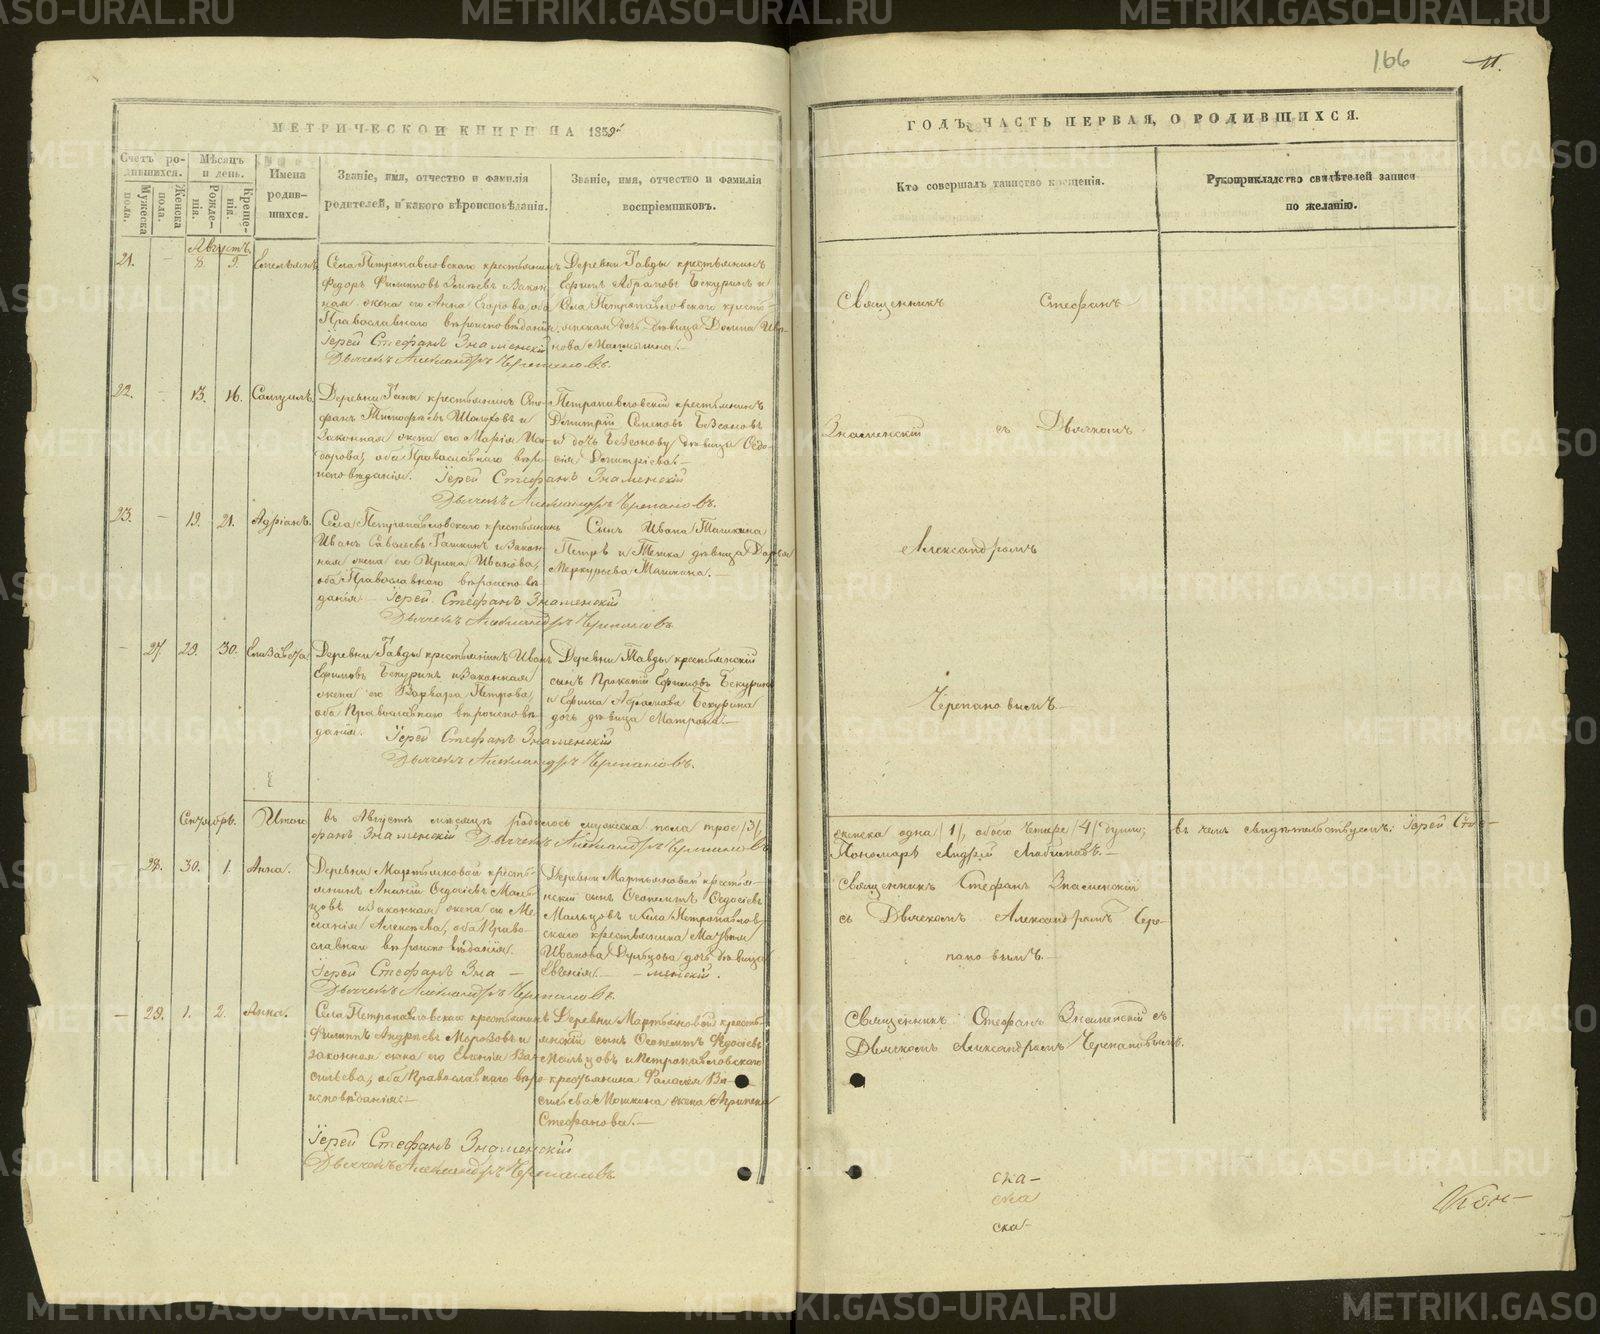 166
11.
МЕТРИЧЕСКОЙ КНИГИ НА 1859й
ГОДЪ, ЧАСТЬ ПЕРВАЯ, О РОДИВШИХСЯ.
Счетъ ро-
дившихся.
Мужеска
пола.
Женска
пола.
Мѣсяцъ
и день.
Рожде-
нія.
Креще-
нія.
Имена
родив-
шихся.
Званіе, имя, отчество и фамилія
родителей, и какого вѣроисповѣданія.
Званіе, имя, отчество и фамилія
воспріемниковъ.
Кто совершалъ таинство крещенія.
Рукоприкладство свидѣтелей записи
по желанію.
Августъ
21. — 8. 9. Емельянъ
Села Петропавловскаго крестьянинъ
Федоръ Филиповъ и Закон-
ная жена его Анна Егорова, оба
Православнаго вѣроисповѣданія
Іерей Стефанъ Знаменскій
Дьячекъ Александръ Черепановъ.
Деревни Тавды крестьянинъ
Ефимъ Абрамовъ Бекуринъ и
Села Петропавловскаго кресть-
янская дочь дѣвица Домна Ива-
нова
Священникъ Стефанъ
22. — 13. 16. Самуилъ.
Деревни крестьянинъ Сте-
фанъ Тимофѣевъ и
Законная жена его Марія Иси-
дорова, оба Православнаго вѣро-
исповѣданія. Іерей Стефанъ Знаменскій
Дьячекъ Александръ Черепановъ.
Петропавловскій крестьянинъ
Дмитрій Семеновъ Безсоновъ
и дочь Безсонову дѣвица Ѳедо-
сія Дмитріева.—
Знаменскій съ Дьячкомъ
23. — 19. 21. Адріанъ.
Села Петропавловскаго крестьянинъ
Иванъ Савельевъ Ташкинъ и Закон-
ная жена его Ирина Иванова,
оба Православнаго вѣроисповѣ-
данія. Іерей Стефанъ Знаменскій
Дьячекъ Александръ Черепановъ.
Сынъ Ивана Ташкина
Петръ и Тетка дѣвица Дарья
Меркурьева Ташкина.—
Александромъ
— 27. 29. 30. Елизавета.
Деревни Тавды крестьянинъ Иванъ
Ефимовъ Бекуринъ и Законная
жена его Варвара Петрова,
оба Православнаго вѣроисповѣ-
данія. Іерей Стефанъ Знаменскій
Дьячекъ Александръ Черепановъ.
Деревни Тавды крестьянскій
сынъ Прокопій Ефимовъ Бекуринъ
и Ефима Абрамова Бекурина
дочь дѣвица Матрона.—
Черепановымъ—
Итого въ Августѣ мѣсяцѣ родилось мужеска пола трое /3/,
женска одна /1/, обоего четыре /4/ души;
въ чемъ свидѣтельствуемъ: Іерей Сте-
фанъ Знаменскій Дьячекъ Александръ Черепановъ
Пономарь Андрей Любимовъ.—
Сентябрь.
28. 30. 1. Анна.
Деревни Мартьяновой кресть-
янинъ Ананій Ѳедосіевъ Маль-
цовъ и Законная жена его Ме-
ланія Алексѣева, оба Право-
славнаго вѣроисповѣданія.
Іерей Стефанъ Зна —
Дьячекъ Александръ Черепановъ.
Деревни Мартьяновой крестья-
нскій сынъ Ѳеопемптъ Ѳедосіевъ
Мальцовъ и Села Петропавлов-
скаго крестьянина Матвея
Иванова дочь дѣвица
Евгенія.— — менскій.
Священникъ Стефанъ Знаменскій
съ Дьячкомъ Александромъ Чере-
пановымъ.—
— 29. 1. 2. Анна.
Села Петропавловскаго крестьянинъ
Филиппъ Андреевъ Морозовъ и
законная жена его Евгенія Ва-
сильева, оба Православнаго вѣро-
исповѣданія.—
Іерей Стефанъ Знаменскій
Дьячекъ Александръ Черепановъ.
Деревни Мартьяновой кресть-
янскій сынъ Ѳеопемптъ Ѳедосіевъ
Мальцовъ и Петропавловскаго
крестьянина Ва-
сильева Мошкина жена Агрипена
Стефанова.—
Священникъ Стефанъ Знаменскій съ
Дьячкомъ Александромъ Черепановымъ.
ска-
ска
ска-
METRIKI.GASO-URAL.RU